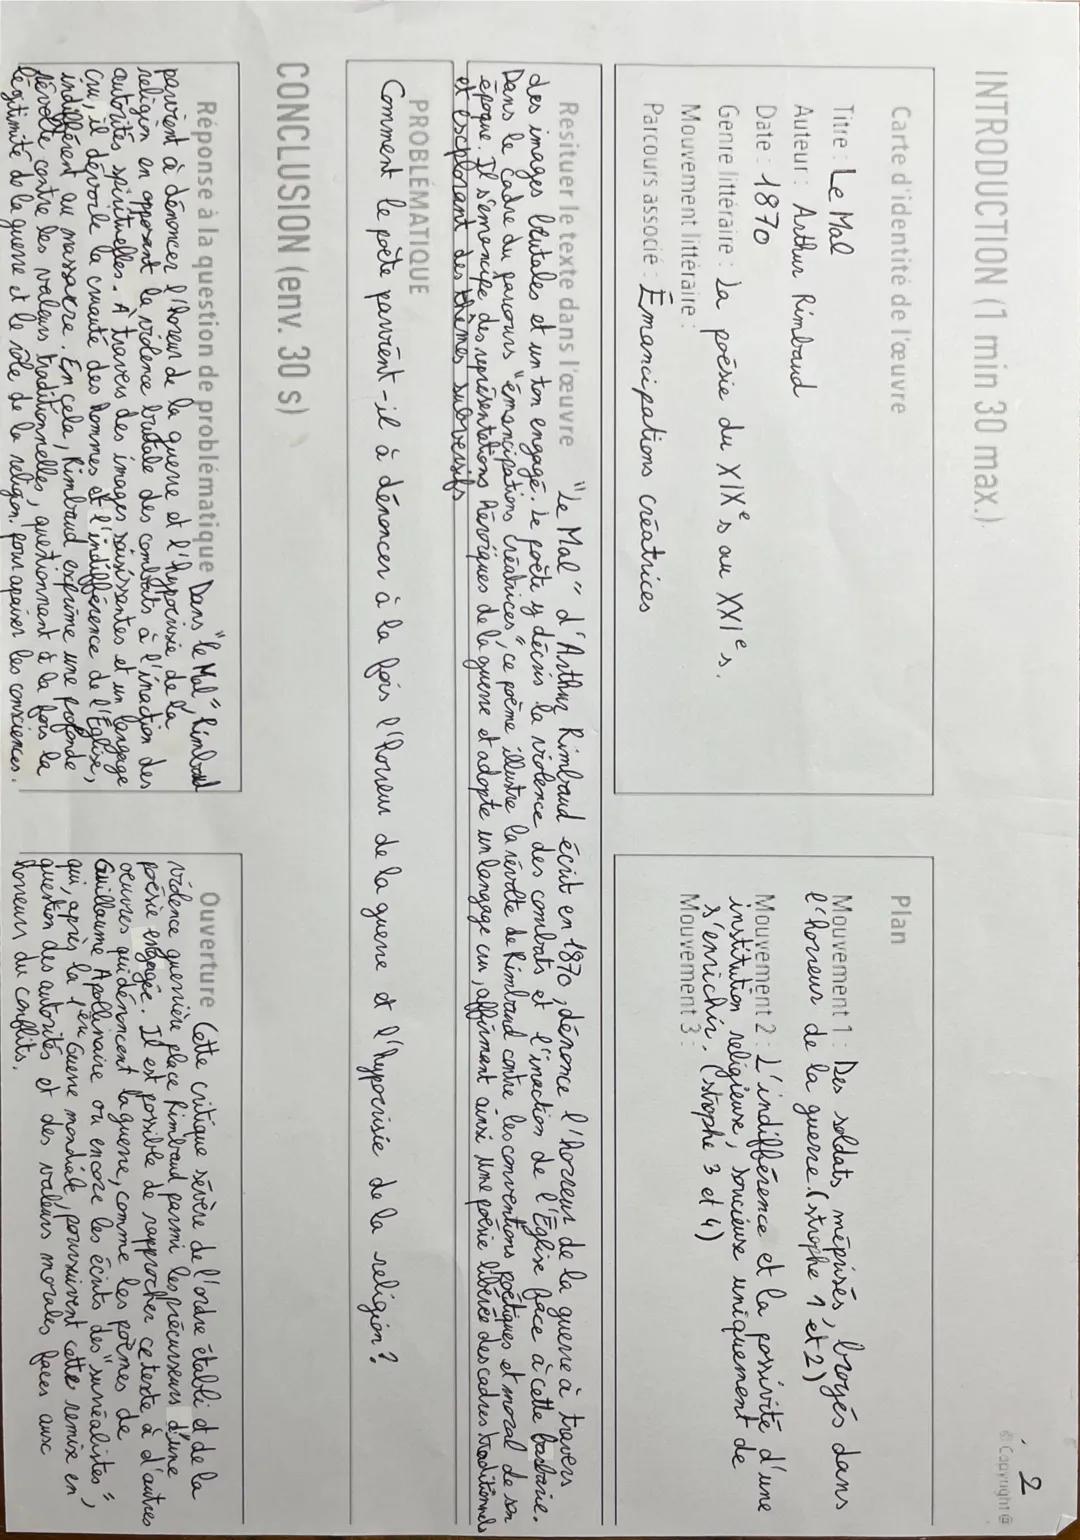 2
© Copyright @
INTRODUCTION (1 min 30 max.)
Carte d'identité de l'œuvre
Titre : Le Mal
Auteur : Arthur Rimbaud
Date : 1870
Genre littéraire : La poésie du XIXe s au XXIe s.
Mouvement littéraire :
Parcours associé : Émancipations créatrices
Plan
Mouvement 1 : Des soldats, méprisés, broyés dans
l'horreur de la guerre. (strophe 1 et 2)
Mouvement 2 : L'indifférence et la passivité d'une
institution religieuse, soucieuse uniquement de
s'enrichir. (strophe 3 et 4)
Mouvement 3 :
Resituer le texte dans l'œuvre "Le Mal" d'Arthur Rimbaud écrit en 1870, dénonce l'horreur de la guerre à travers
des images brutales et un ton engagé. Le poète y décris la violence des combats et l'inaction de l'Église face à cette barbarie.
Dans le cadre du parcours "émancipations créatrices", ce poème illustre la révolte de Rimbaud contre les conventions poétiques et moral de son
époque. Il s'émancipe des représentations héroïques de la guerre et adopte un langage cru, affirmant ainsi une poésie libérée des cadres traditionnels
et explorant des thèmes subversifs
PROBLÉMATIQUE
Comment le poète parvient-il à dénoncer à la fois l'horreur de la guerre et l'hypocrisie de la religion ?
CONCLUSION (env. 30 s)
Réponse à la question de problématique Dans "le Mal", Rimbaud
parvient à dénoncer l'horreur de la guerre et l'hypocrisie de la
religion en opposant la violence brutale des combats à l'inaction des
autorités spirituelles. À travers des images saisissantes et un langage
cru, il dévoile la cruauté des hommes et l'indifférence de l'Église,
indifférent au massacre. En cela, Rimbaud exprime une profonde
révolte contre les valeurs traditionnelles, questionnant à la fois la
légitimité de la guerre et le rôle de la religion pour apaiser les consciences.
Ouverture Cette critique sévère de l'ordre établi et de la
violence guerrière place Rimbaud parmi les précurseurs d'une
poésie engagée. Il est possible de rapprocher ce texte à d'autres
oeuvres qui dénoncent la guerre, comme les poèmes de
Guillaume Apollinaire ou encore les écrits des "surréalistes",
qui, après la 1ère Guerre mondiale, poursuivent cette remise en
question des autorités et des valeurs morales faces aux
horreurs du conflits.